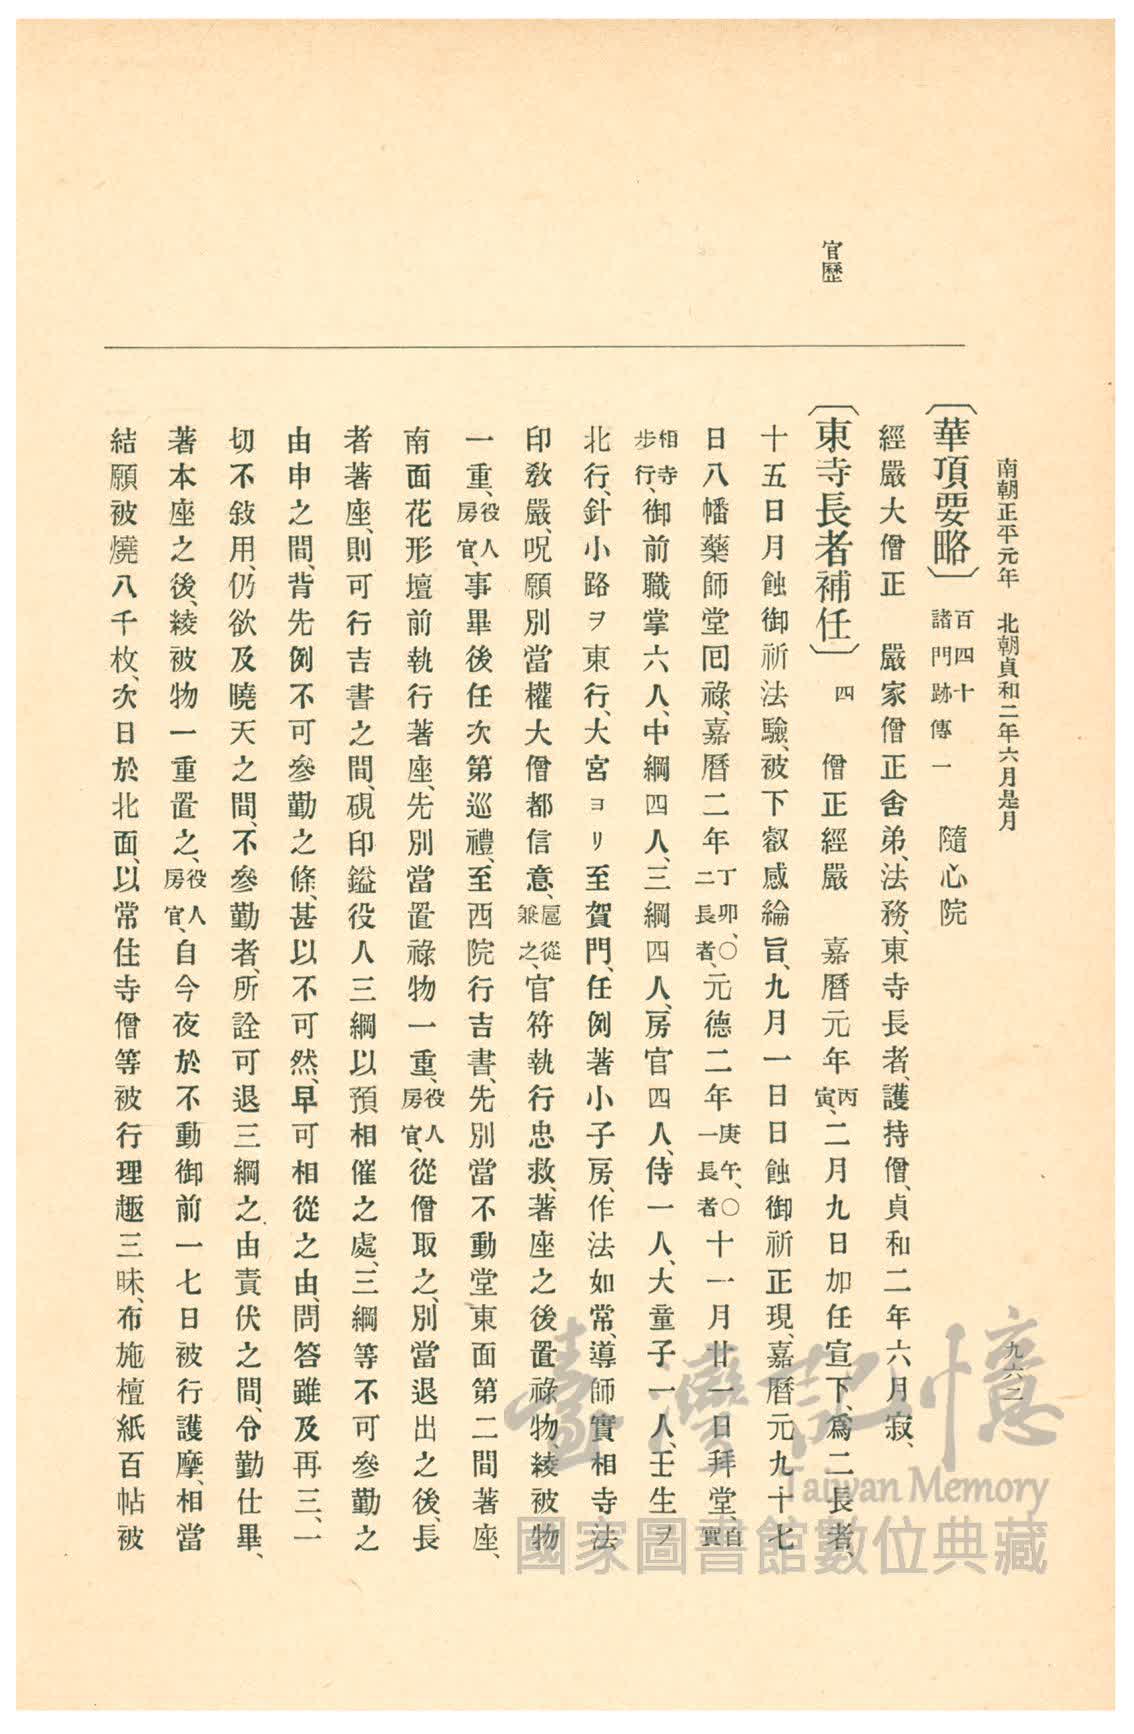 南朝正平元年 北朝貞和二年六月是月
九六二
官歷
〔華頂要略〕 百四十 諸門跡傳一 隨心院
經嚴大僧正 嚴家僧正舍弟、法務、東寺長者、護持僧、貞和二年六月寂、
〔東寺長者補任〕 四 僧正經嚴 嘉曆元年丙寅、二月九日加任宣下、爲二長者、
十五日月蝕御祈法驗、被下叡感綸旨、九月一日日蝕御祈正現、嘉曆元九十七
日八幡藥師堂囘祿、嘉曆二年丁卯、〇二長者、元德二年庚午、〇一長者十一月廿一日拜堂、自實
相寺步行、御前職掌六人、中綱四人、三綱四人、房官四人、侍一人、大童子一人、壬生ヲ
北行、針小路ヲ東行、大宮ヨリ至賀門、任例著小子房、作法如常、導師實相寺法
印敎嚴、呪願別當權大僧都信意、扈從兼之、官符執行忠救、著座之後置祿物綾被物
一重、役人房官、事畢後任次第巡禮、至西院行吉書、先別當不動堂東面第二間著座、
南面花形壇前執行著座、先別當置祿物一重、役人房官、從僧取之、別當退出之後、長
者著座、則可行吉書之間、硯印鎰役人三綱以預相催之處、三綱等不可參勤之
由申之間、背先例不可參勤之條、甚以不可然、早可相從之由、問答雖及再三、一
切不敍用、仍欲及曉天之間、不參勤者、所詮可退三綱之由責伏之間、令勤仕畢、
著本座之後、綾被物一重置之、役人房官、自今夜於不動御前一七日被行護摩、相當
結願被燒八千枚、次日於北面、以常住寺僧等被行理趣三昧、布施檀紙百帖被
臺灣記憶
Taiwan Memory
國家圖書館數位典藏